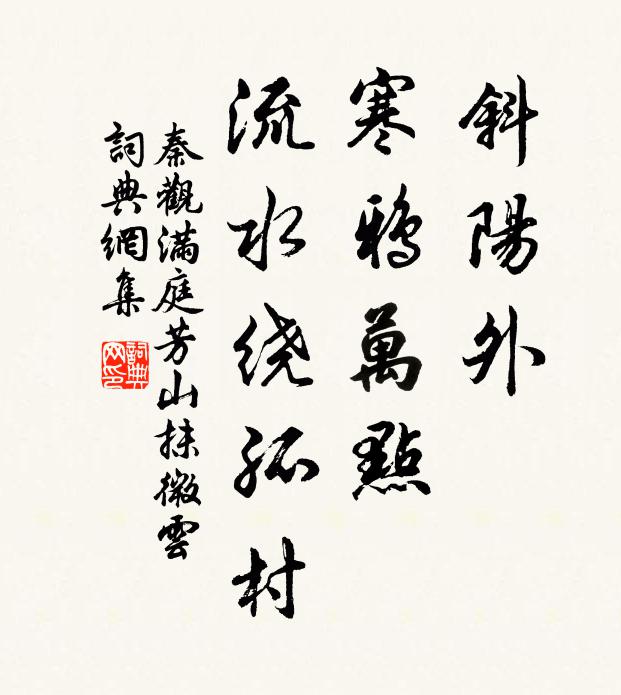 斜陽外
寒鴉萬點
流水绕孤村
秦觀滿庭芳山抹微雲
詞典網集
詞典网印